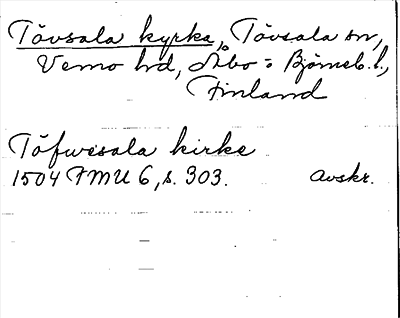 Tövsala kyrka, Tövsala sn,
Vemo hd, Åbo o Björneb. l.,
Finland
Töfwesala kirke
1504 FMU 6, s. 303. Avskr.